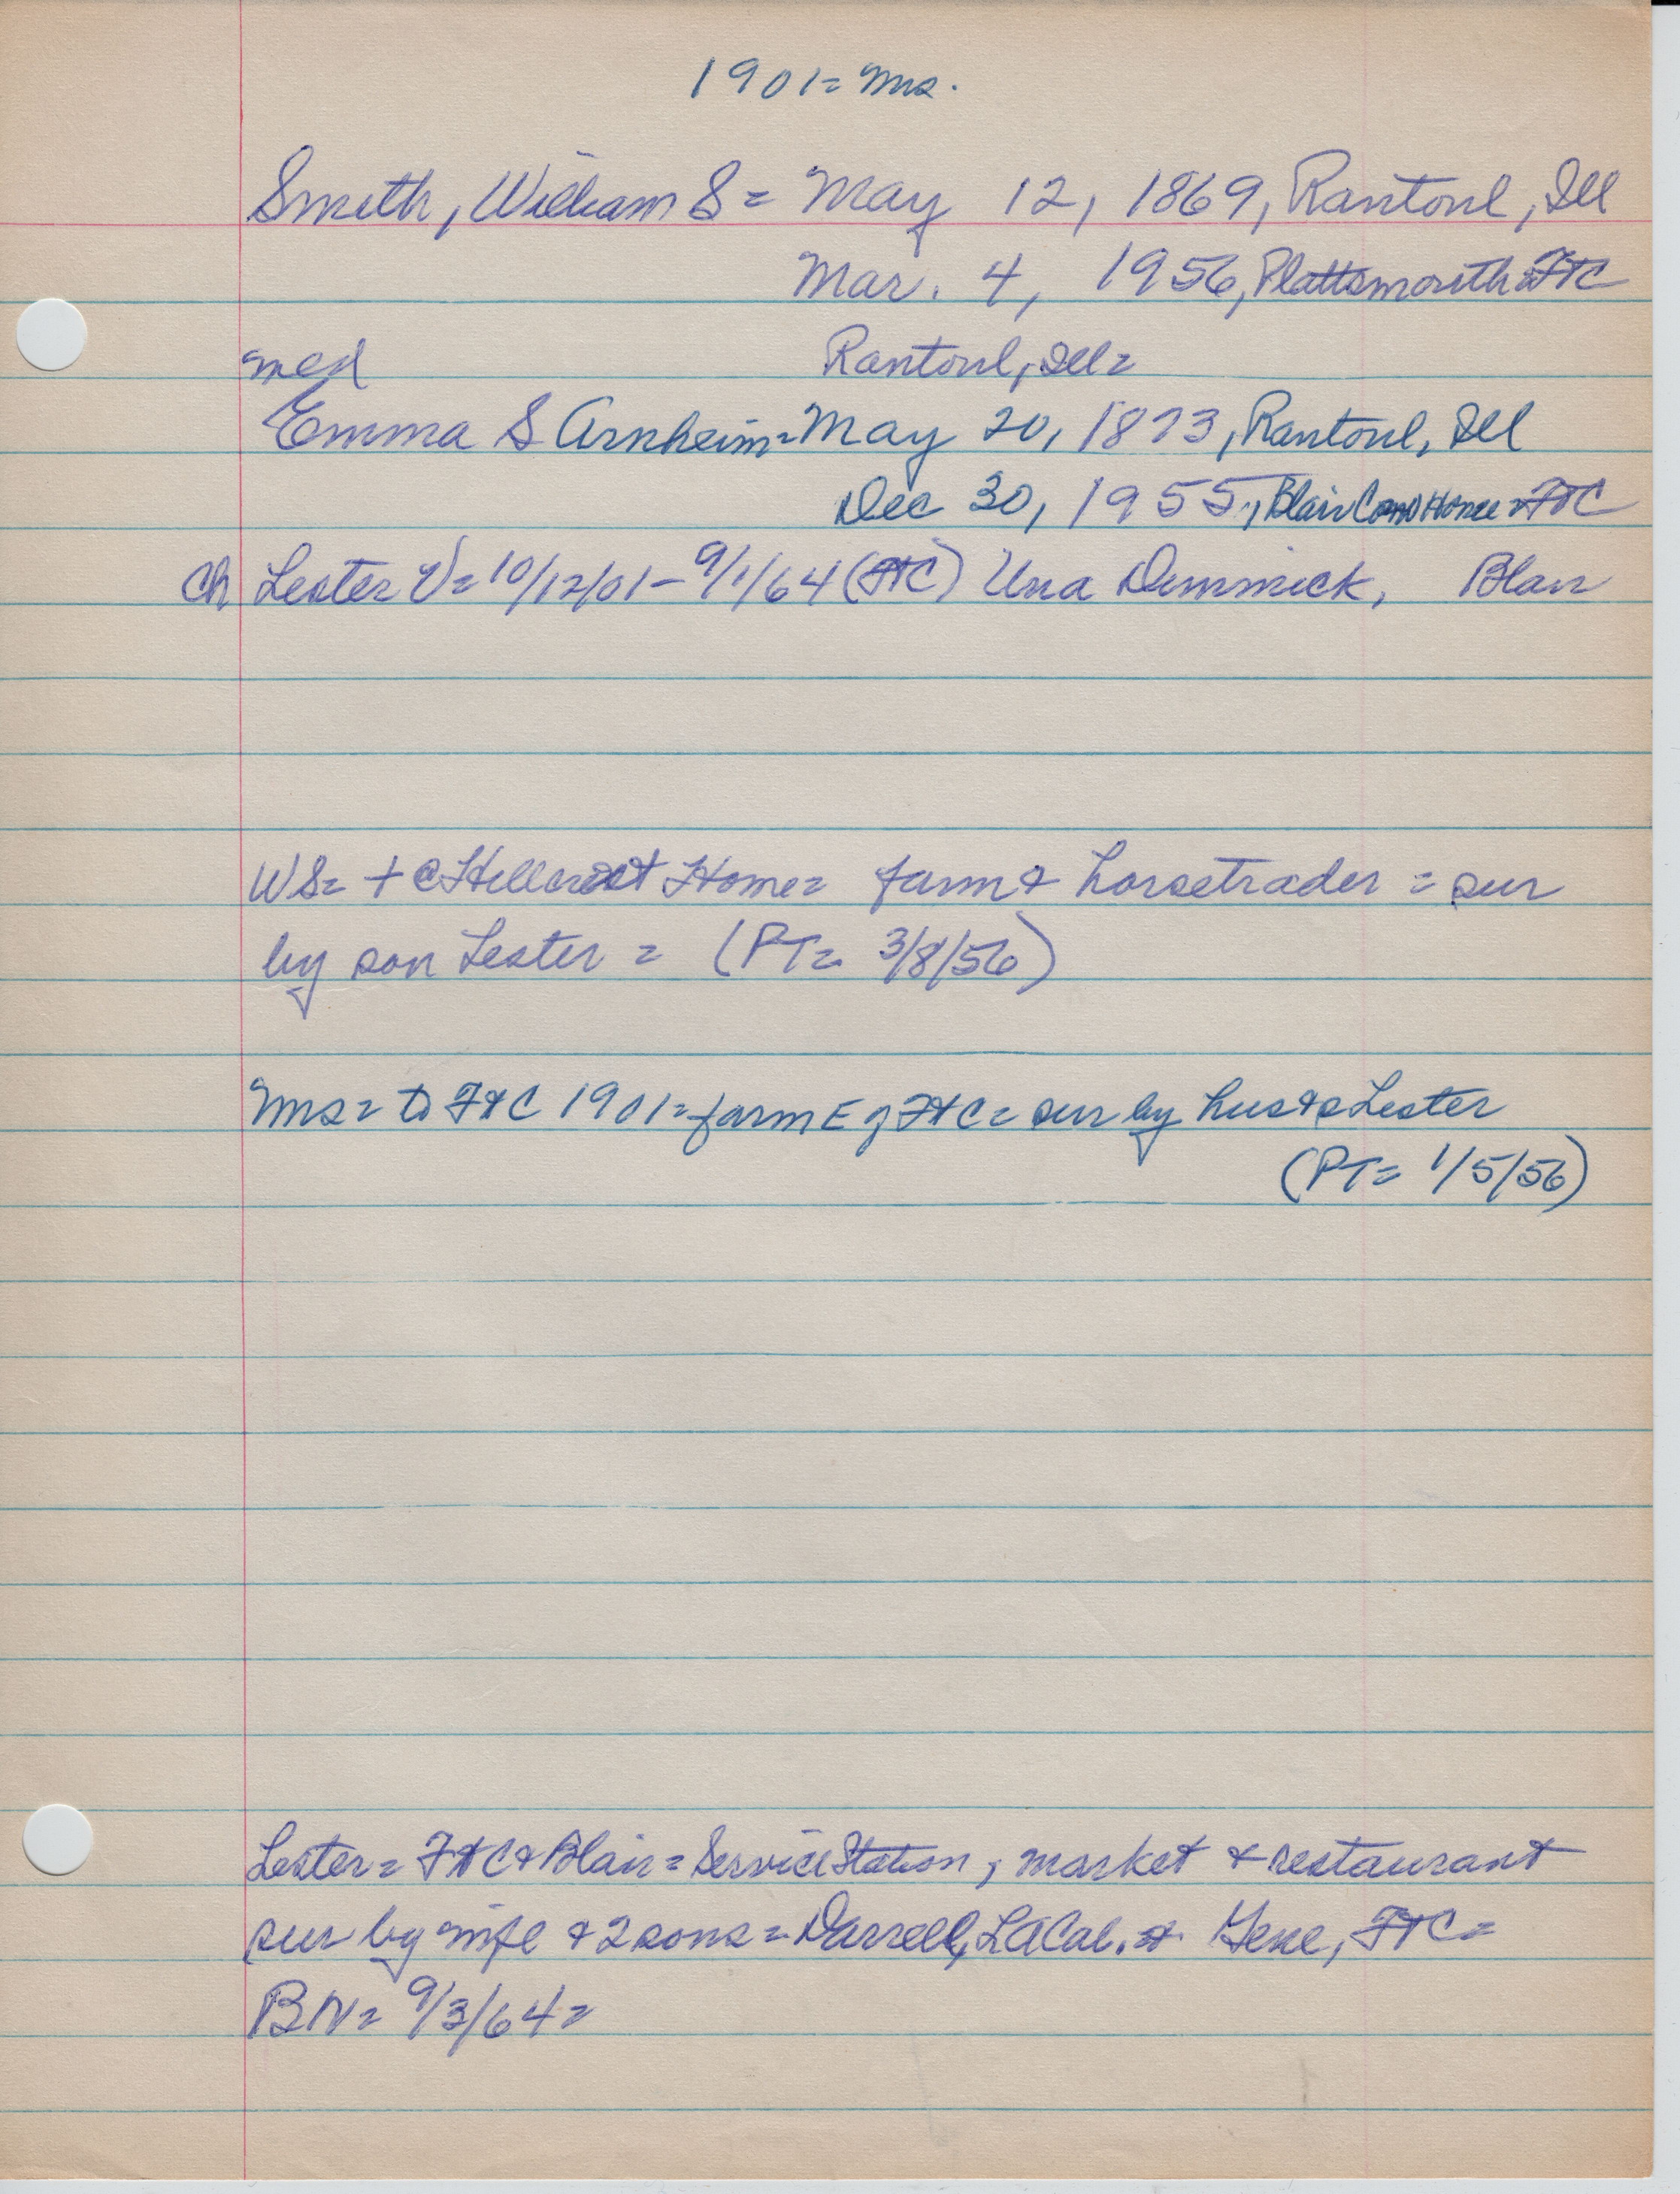 1901= Mrs.
Smith, William S= May 12, 1869, Rantoul, Ill
Mar. 4, 1956, Plattsmouth= FtC
med Rantoul, Ill=
Emma S Arnheim= May 20, 1873, Rantoul, Ill
Dec 30, 1955, Blair Conv Home= FtC
Ch Lester V= 10/12/01- 9/1/64 (FtC) Una Dimmick, Blair
WS= + @ Hillcrest Home= farm & horsetrader = sur
by son Lester = (PT= 3/8/56)
Mrs= to FtC 1901= farm E of FtC= sur by hus & s Lester
(PT= 1/5/56)
Lester= FtC & Blair= Service Station, market & restaurant
sur by wife & 2 sons= Darrell, LA Cal. & Gene, FtC=
BN= 9/3/64=